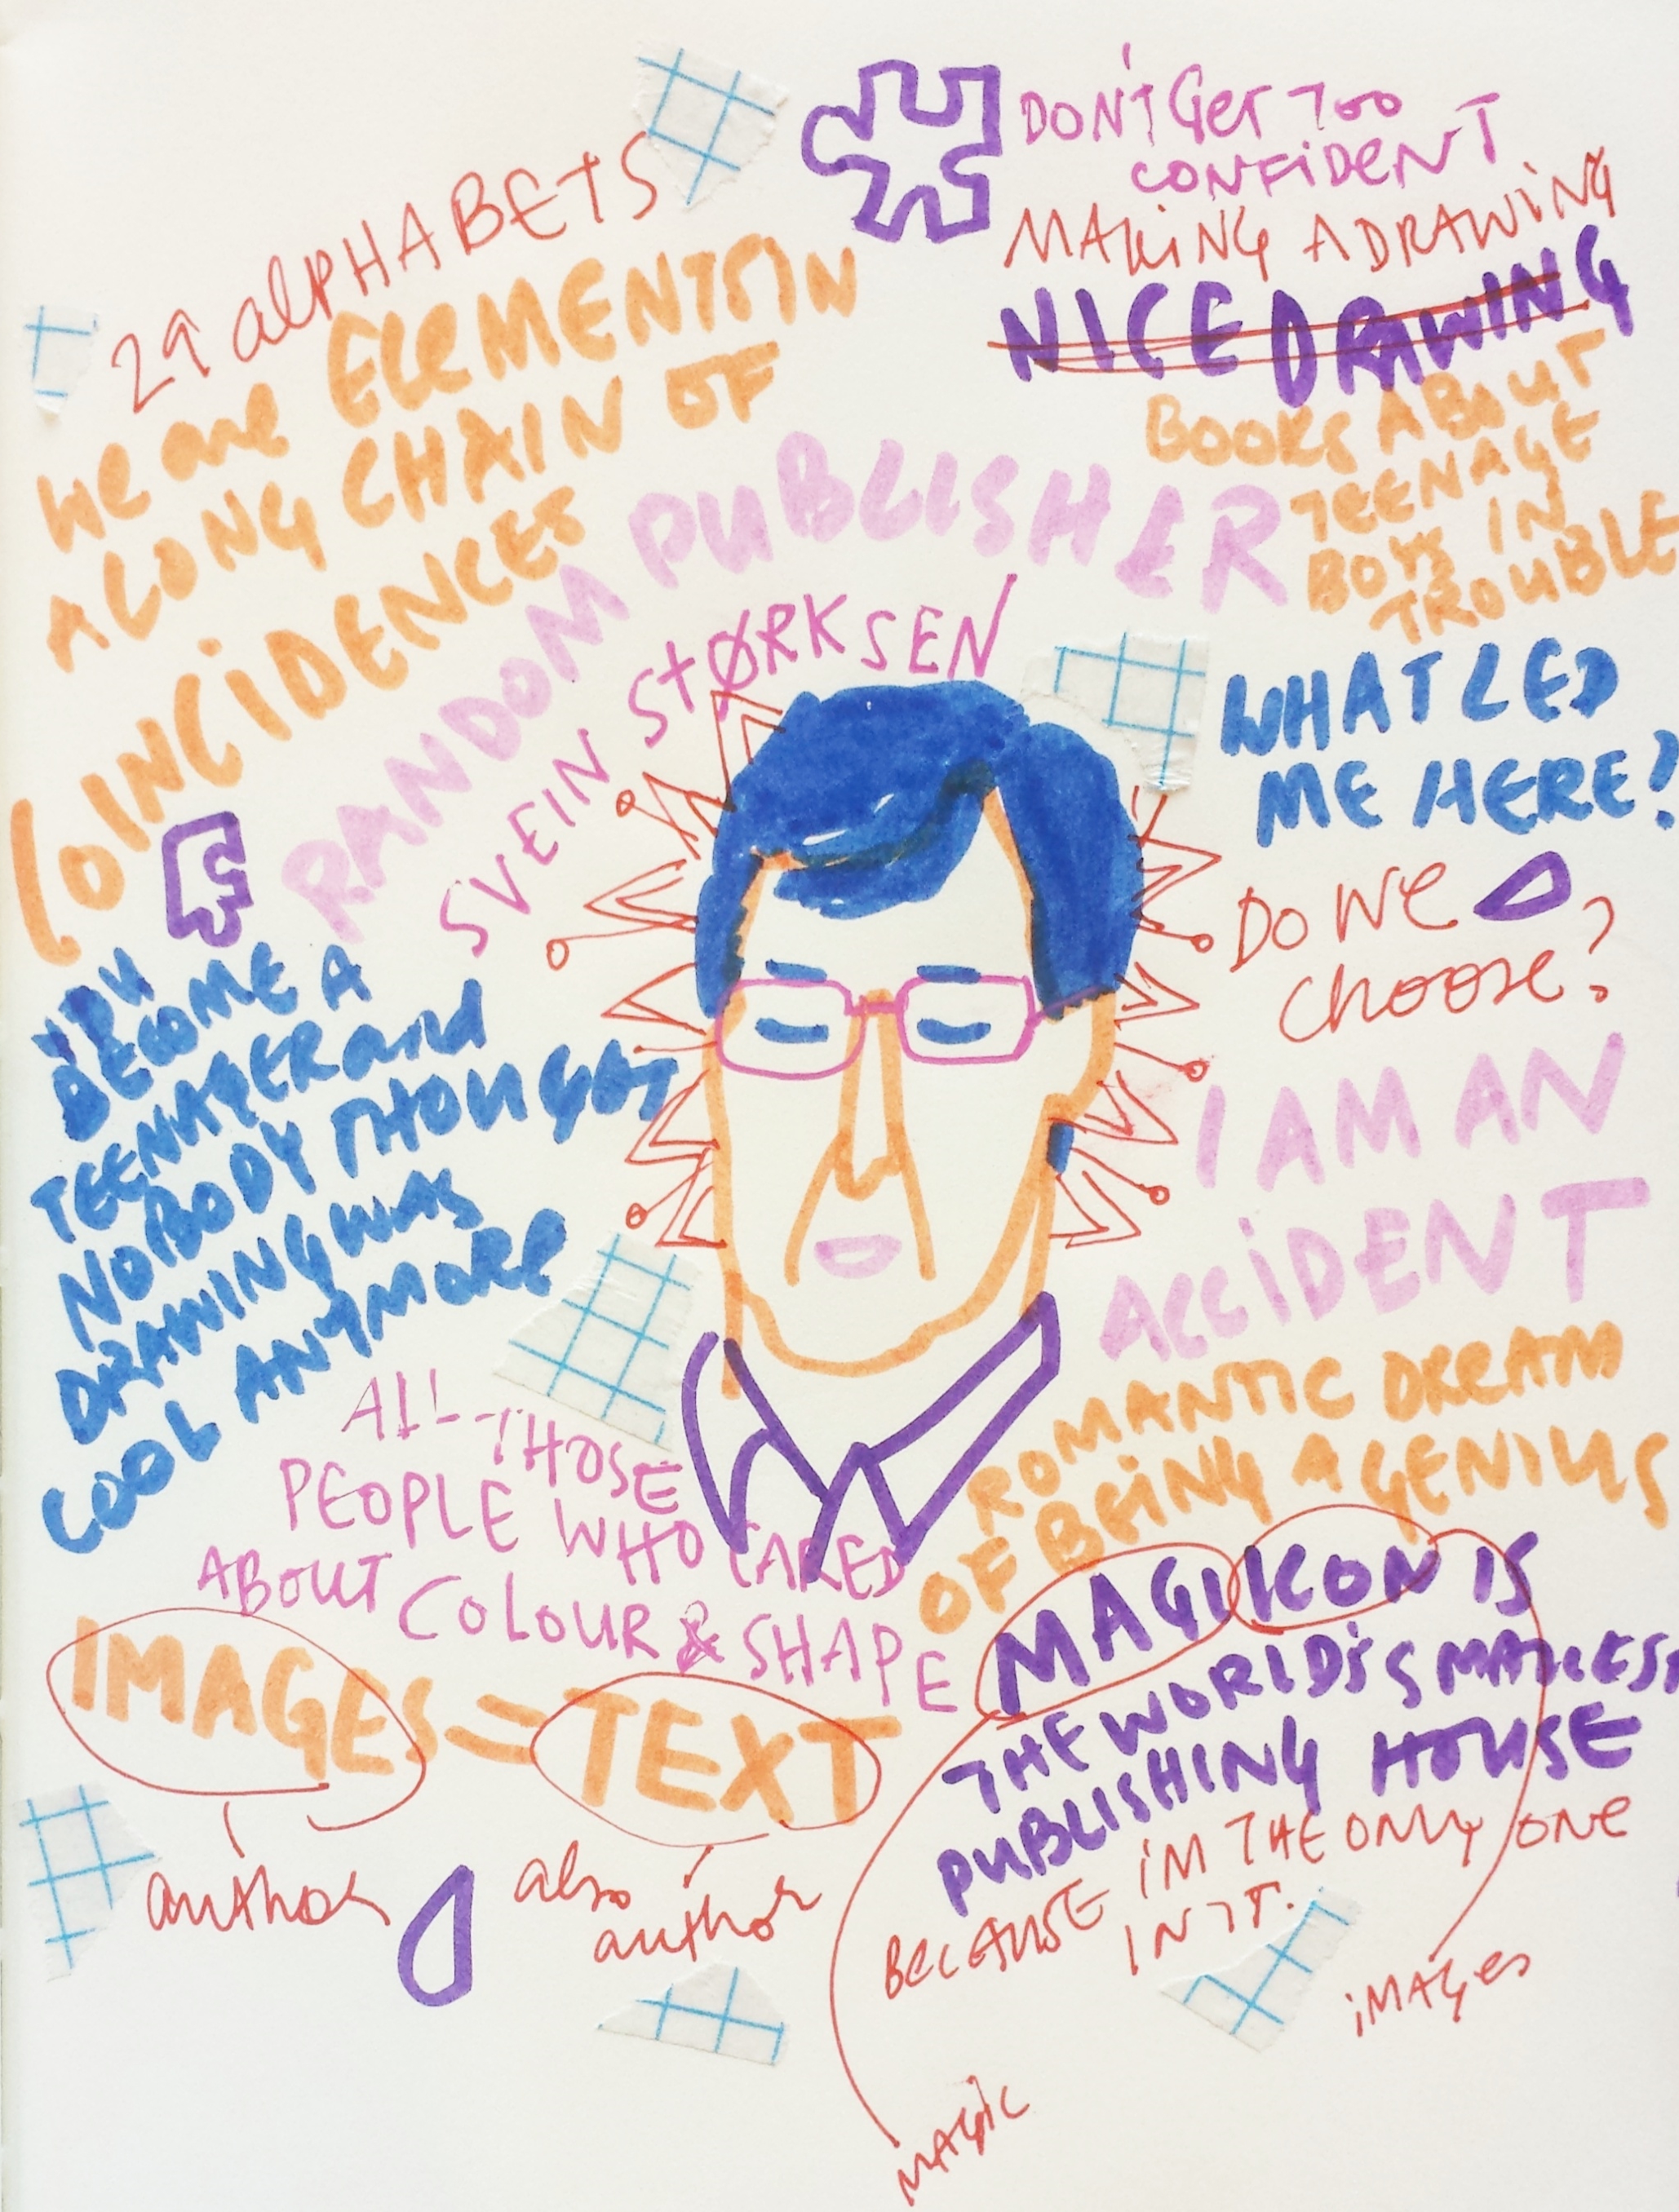 29 alPHABETS
We are ELEMENTS IN
A LONG CHAIN OF
COINCIDENCES
DON'T GeT TOO
CONFiDENT
MAKiNG A DRAWiNG
NICE DRAWING
BOOKS ABOUT
TEENAGE
BOYS IN
TROUBLE
RANDOM PUBLISHER
SVEIN STØRKSEN
WHAT LED
ME HERE?
DO WE
Choose?
I AM AN
ACCiDENT
ROMANTIC DREAM
OF BEiNG A GENIUS
YOU
BECOME A
TEENAGER and
NOBODY THOUGHT
DRAWING WAS
COOL ANYMORE
ALL THOSE
PEOPLE WHO CARED
ABOUT COLOUR & SHAPE
IMAGES = TEXT
author
also
author
MAGIKON IS
THE WORLD'S SMALLEST
PUBLISHING HOUSE
BECAUSE i'M THE ONLY ONE
IN IT.
iMAGes
MAGiC